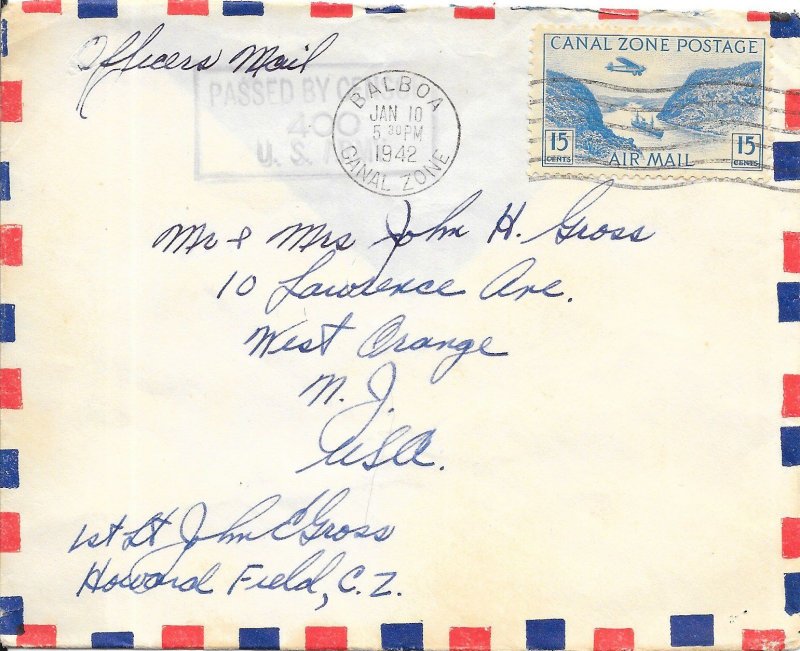 Officers Mail
PASSED BY CENSOR
400
U. S. ARMY
BALBOA
JAN 10
5 30 PM
1942
CANAL ZONE
CANAL ZONE POSTAGE
15 CENTS
15 CENTS
AIR MAIL
Mr & Mrs John H. Gross
10 Lawrence Ave.
West Orange
N. J.
USA.
1st Lt John E Gross
Howard Field, C. Z.